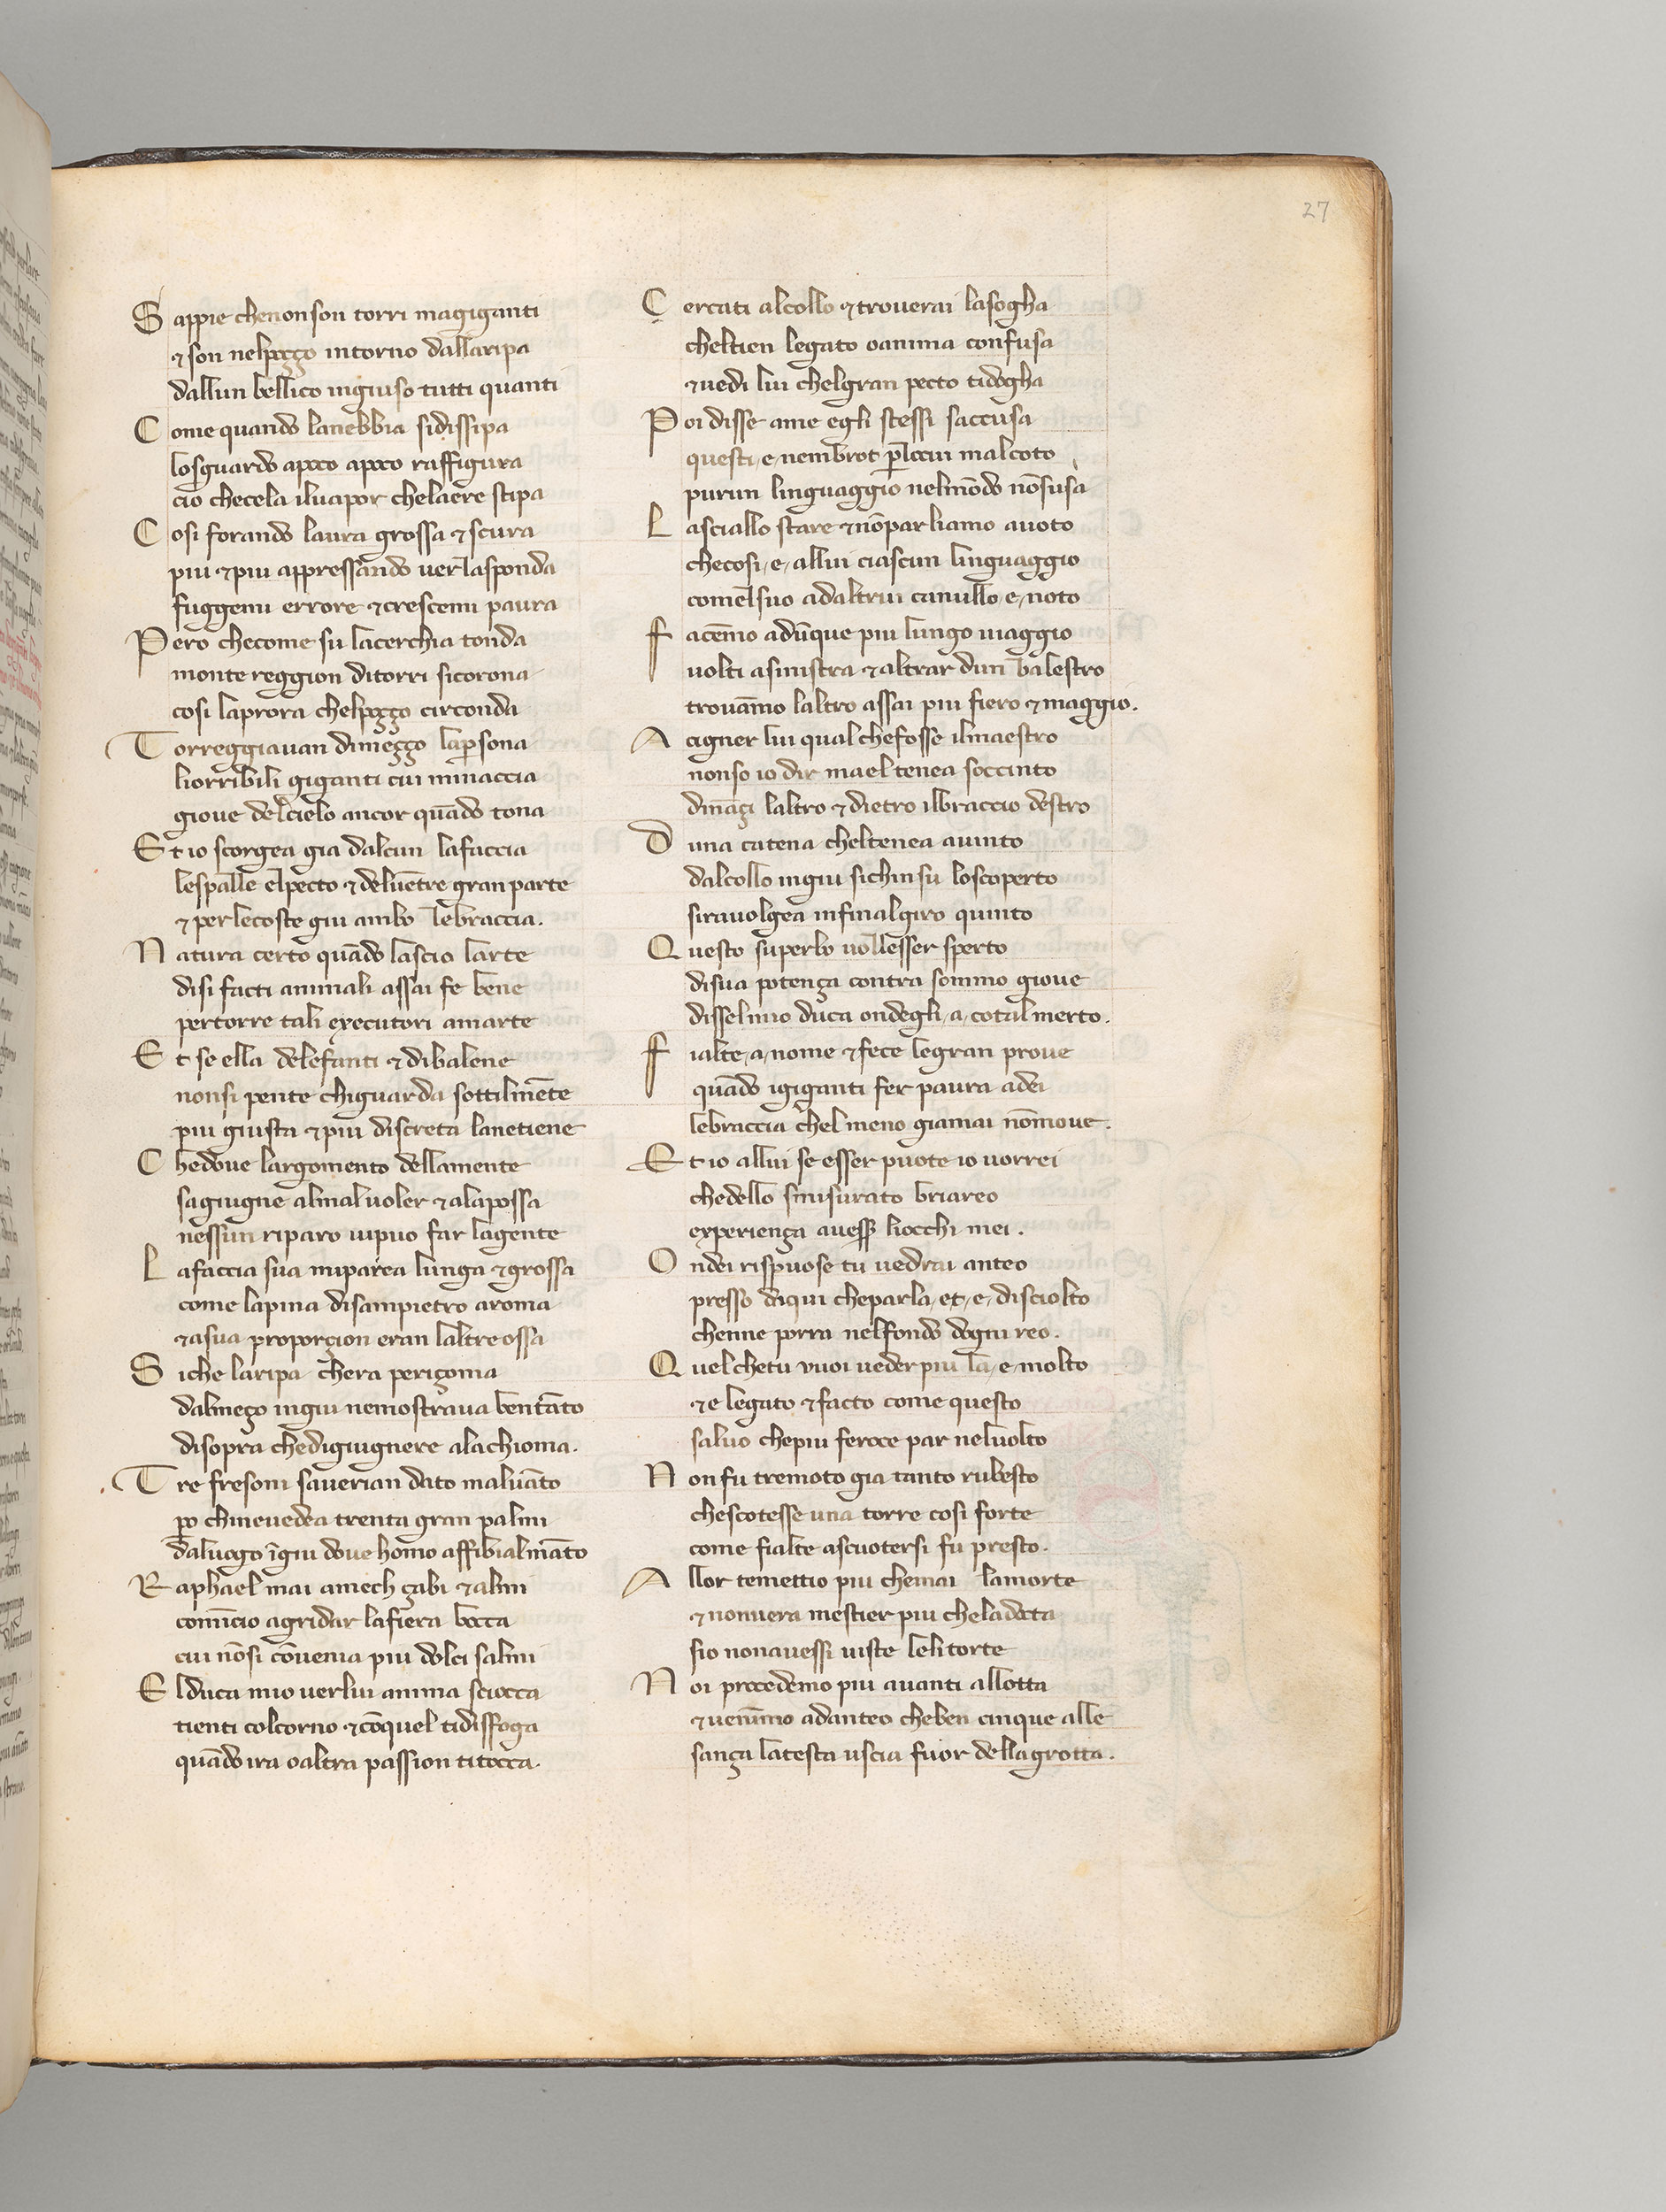 27
S appie chenonson torri magiganti
⁊ son nelpozzo intorno dallaripa
dallun bellico ingiuso tutti quanti
C ome quando lanebbia sidissipa
losguardo apoco apoco raffigura
cio checela iluapor chelaere stipa
C osi forando laura grossa ⁊ scura
piu ⁊ piu appressando uerlasponda
fuggemi errore ⁊ crescemi paura
P ero checome su lacerchia tonda
monte reggion ditorri sicorona
cosi laprora chelpozzo circonda
T orreggiauan dimezzo lapersona
liorribili giganti cui minaccia
gioue delcielo ancor quādo tona
E t io scorgea gia dalcun lafaccia
lespalle elpecto ⁊ deluētre gran parte
⁊ perlecoste giu ambo lebraccia.
N atura certo quādo lascio larte
disi facti animali assai fe bene
pertorre tali executori amarte
E t se ella delefanti ⁊ dibalene
nonsi pente chiguarda sottilmēte
piu giusta ⁊ piu discreta lanetiene
C hedoue largomento dellamente
sagiugne almal uoler ⁊ alapossa
nessun riparo uipuo far lagente
L afaccia sua miparea lunga ⁊ grossa
come lapina disampietro aroma
⁊ asua proporçion eran laltre ossa
S iche laripa chera periçoma
dalmeço ingiu nemostraua bentāto
disopra chedigiugnere alachioma.
T re fresoni sauerian dato maluāto
po chineuedea trenta gran palmi
daluogo īgiu doue homo affibialmāto
R aphael mai amech çabi ⁊ almi
comīcio agridar lafiera bocca
cui nōsi cōuenia piu dolci salmi
E lduca mio uerlui anima sciocca
tienti colcorno ⁊ cōquel tidisfoga
quādo ira oaltra passion titocca.
C ercati alcollo ⁊ trouerai lasogha
cheltien legato oanima confusa
⁊ uedi lui chelgran pecto tidogha
P oi disse ame egli stessi saccusa
questi, e, nembrot plocui malcoto
purun linguaggio nelmōdo nōsusa
L asciallo stare ⁊ nōparliamo auoto
checosi, e, allui ciascun linguaggio
comelsuo adaltrui canullo, e, noto
F acēmo adūque piu lungo uiaggio
uolti asinistra ⁊ altrar dun balestro
trouāmo laltro assai piu fiero ⁊ maggio.
A cigner lui qual chefosse ilmaestro
nonso io dir mael tenea soccinto
dināçi laltro ⁊ dietro ilbraccio destro
D una catena cheltenea auinto
dalcollo ingiu sichinsu loscoperto
sirauolgea infinalgiro quinto
Q uesto superbo uollesser sperto
disua potença contra sommo gioue
disselmio duca ondegli, a, cotal merto.
F ialte, a, nome ⁊ fece legran proue
quādo igiganti fer paura adei
lebraccia chel meno giamai nōmoue.
E t io allui se esser puote io uorrei
chedello smisurato briareo
experiença auesser liocchi mei.
O ndei rispuose tu uedrai anteo
presso diqui cheparla, et, e, disciolto
chenne porra nelfondo dogni reo.
Q uel chetu vuoi ueder piu la, e, molto
⁊ e legato ⁊ facto come questo
saluo chepiu feroce par neluolto
N on fu tremoto gia tanto rubesto
chescotesse una torre cosi forte
come fialte ascuotersi fu presto.
A llor temettio piu chemai lamorte
⁊ nonuera mestier piu cheladocta
sio nonauessi uiste lelitorte
N oi procedemo piu auanti allotta
⁊ uenīmo adanteo cheben cinque alle
sança latesta uscia fuor dellagrotta.